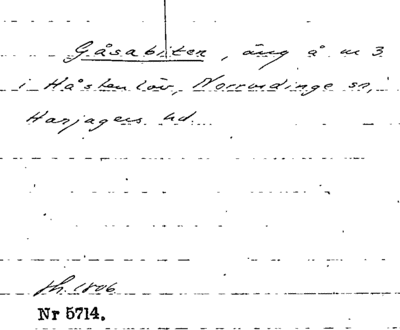 Gåsabiten, äng å n 3
i Håstenlöv, Norrvidinge sn,
Harjagers hd
sh. 1806
Nr 5714.